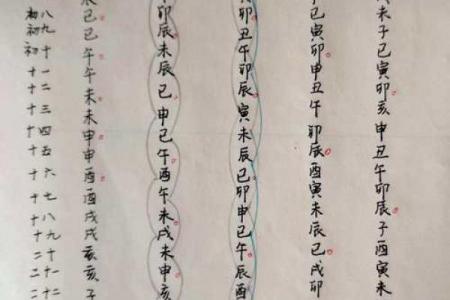 未子巳寅卯亥申丑午卯辰子酉寅未
子巳寅卯申丑午卯辰酉寅未辰巳戌卯
丑午卯辰寅未辰巳卯申巳午辰酉
卯辰未辰巳申巳午酉午未戌未申亥
辰巳巳午午未未申申酉酉戌戌亥亥子
初八初九初十十一十二十三十四十五十六十七十八十九二十二十一二十二